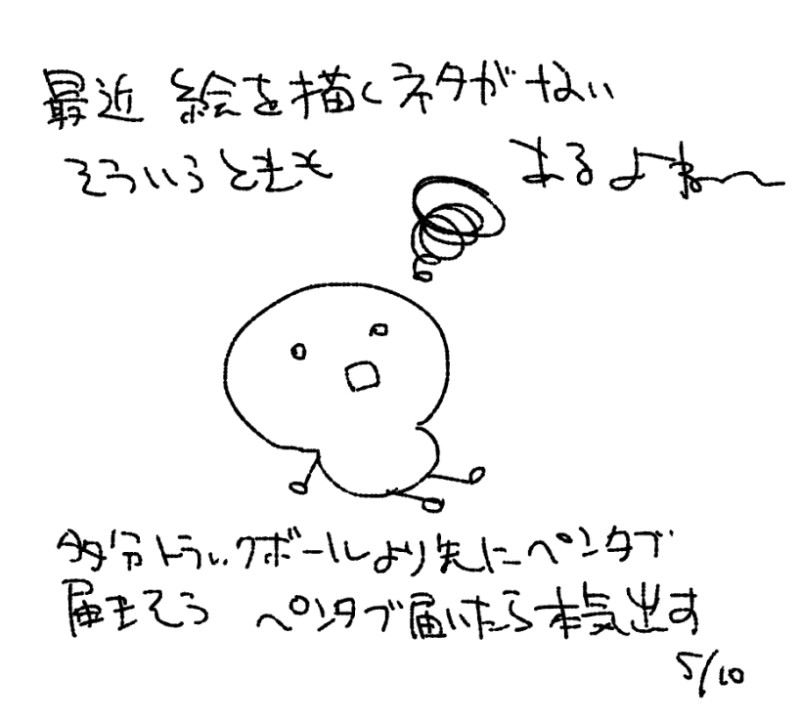 最近 絵を描くネタがない
そういうときも あるよねー〜
多分トラックボールより先にペンタブ
届きそう ペンタブ届いたら本気出す
5/10